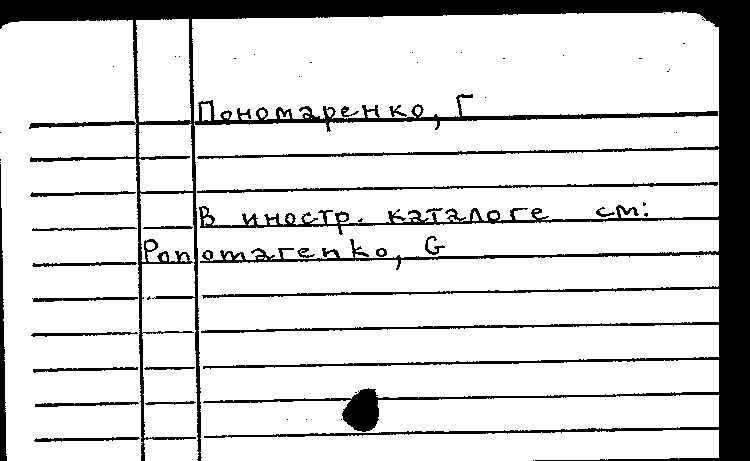 Пономаренко, Г
В иностр. каталоге см:
Ponomarenko, G